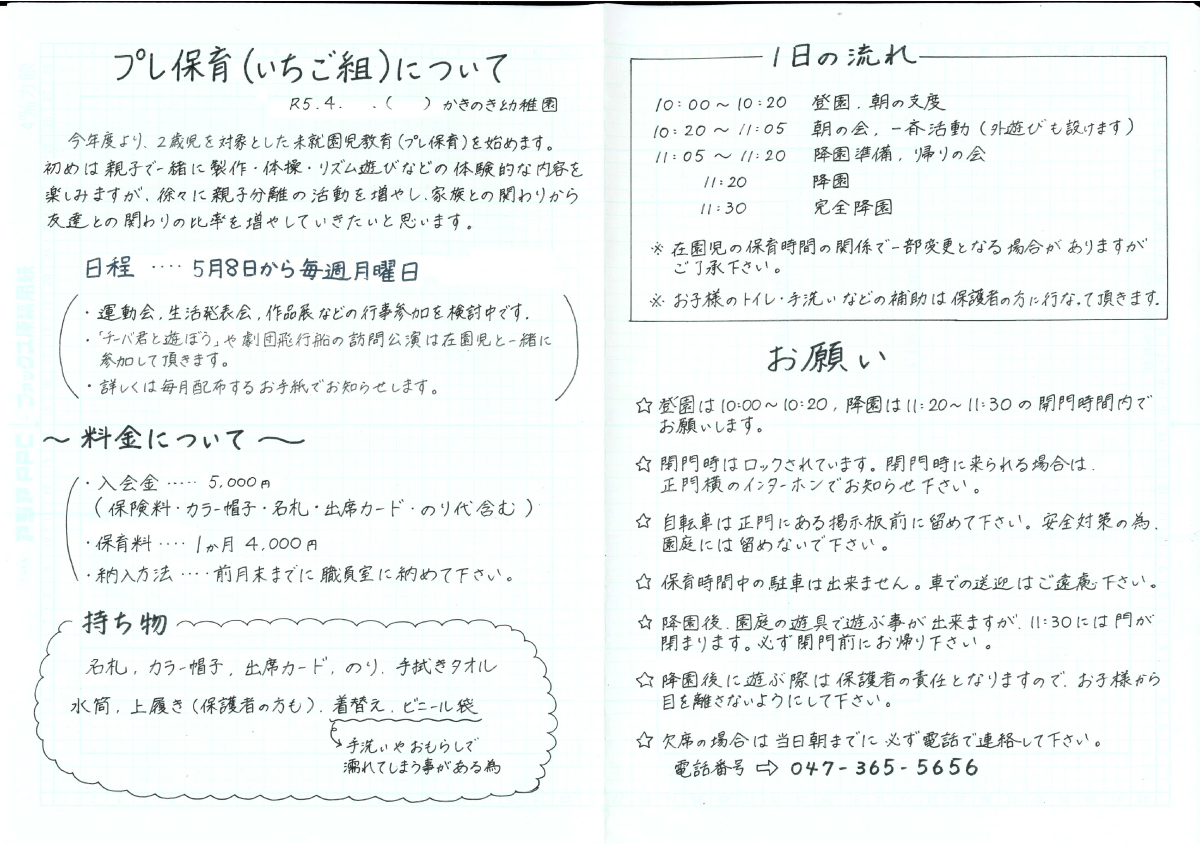 プレ保育(いちご組)について
R5.4. .( ) かきのき幼稚園
今年度より、2歳児を対象とした未就園児教育(プレ保育)を始めます。
初めは親子で一緒に製作・体操・リズム遊びなどの体験的な内容を
楽しみますが、徐々に親子分離の活動を増やし、家族との関わりから
友達との関わりの比率を増やしていきたいと思います。
日程 ‥‥ 5月8日から毎週月曜日
・運動会,生活発表会,作品展などの行事参加を検討中です.
・「チーバ君と遊ぼう」や劇団飛行船の訪問公演は在園児と一緒に
参加して頂きます。
・詳しくは毎月配布するお手紙でお知らせします。
〜料金について〜
・入会金 ‥‥‥ 5,000円
(保険料・カラー帽子・名札・出席カード・のり代含む)
・保育料 ‥‥ 1か月 4,000円
・納入方法 ‥‥ 前月末までに職員室に納めて下さい。
持ち物
名札, カラー帽子, 出席カード, のり, 手拭きタオル
水筒, 上履き(保護者の方も), 着替え, ビニール袋
手洗いやおもらしで
濡れてしまう事がある為
1日の流れ
10:00〜10:20 登園,朝の支度
10:20〜11:05 朝の会,一斉活動(外遊びも設けます)
11:05〜11:20 降園準備,帰りの会
11:20 降園
11:30 完全降園
※ 在園児の保育時間の関係で一部変更となる場合がありますが
ご了承下さい。
※ お子様のトイレ・手洗いなどの補助は保護者の方に行なって頂きます.
お願い
☆ 登園は10:00〜10:20, 降園は11:20〜11:30の開門時間内で
お願いします。
☆ 閉門時はロックされています。閉門時に来られる場合は、
正門横のインターホンでお知らせ下さい。
☆ 自転車は正門にある掲示板前に留めて下さい。安全対策の為、
園庭には留めないで下さい。
☆ 保育時間中の駐車は出来ません。車での送迎はご遠慮下さい。
☆ 降園後、園庭の遊具で遊ぶ事が出来ますが、11:30には門が
閉まります。必ず閉門前にお帰り下さい。
☆ 降園後に遊ぶ際は保護者の責任となりますので、お子様から
目を離さないようにして下さい。
☆ 欠席の場合は当日朝までに必ず電話で連絡して下さい。
電話番号 ⇨ 047-365-5656